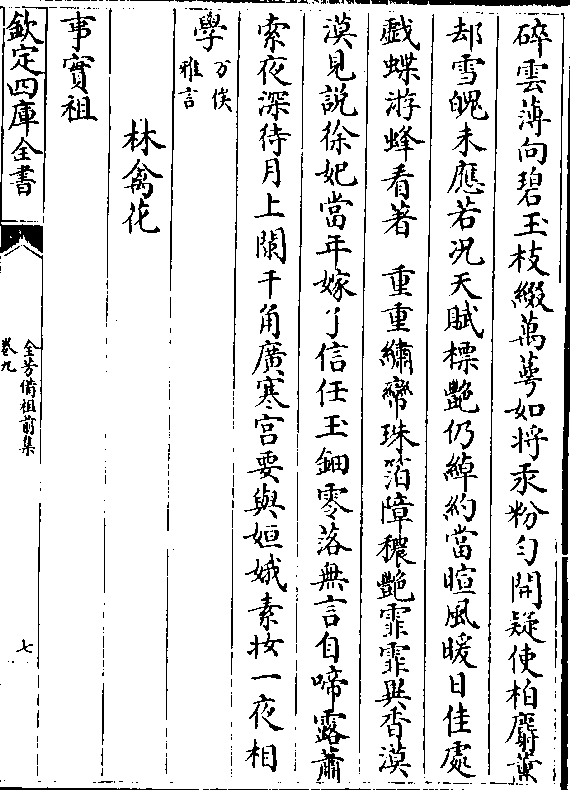 碎雲薄向碧玉枝綴萬蕚如將汞粉勻開疑使柏麝薰
却雪魄未應若况天賦標艶仍綽約當暄風暖日佳處
戯蝶游蜂看著　重重繡帟珠箔障穠艶霏霏異香漠
漠見說徐妃當年嫁了信任玉鈿零落無言自啼露蕭
索夜深待月上闌干角廣寒宫要與姮娥素妝一夜相
學万俟雅言
林禽花
事實祖
欽定四庫全書
全芳備祖前集
卷九
七